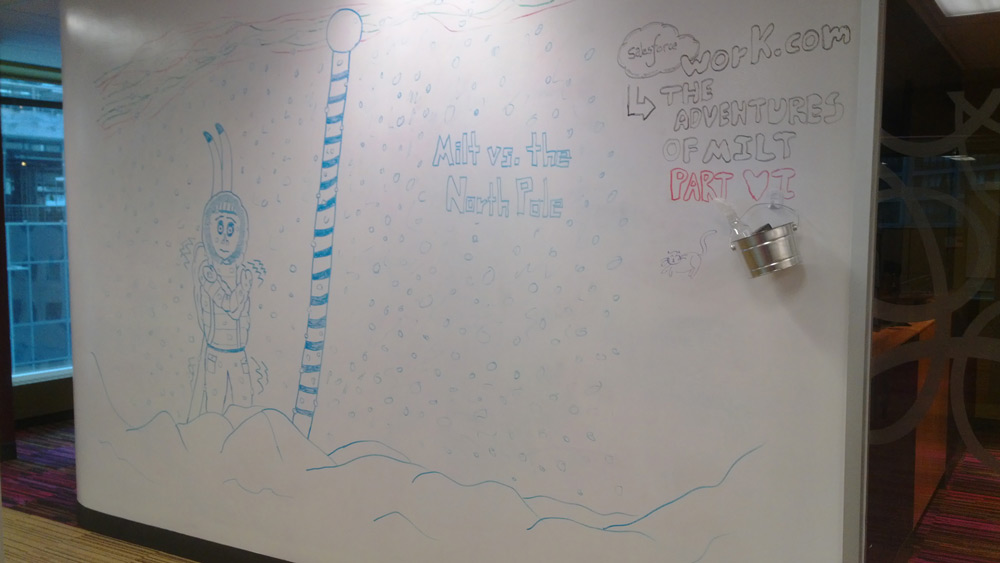 Milt vs. the
North Pole
salesforce
work.com
THE
ADVENTURES
OF MILT
PART VI